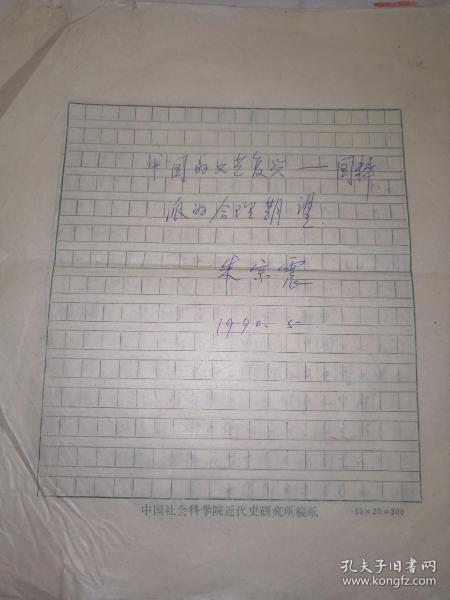 中国的文艺复兴——国粹
派的合理期望
朱宗震
1990.5
中国社会科学院近代史研究所稿纸 15×20=300
孔夫子旧书网
www.kongfz.com